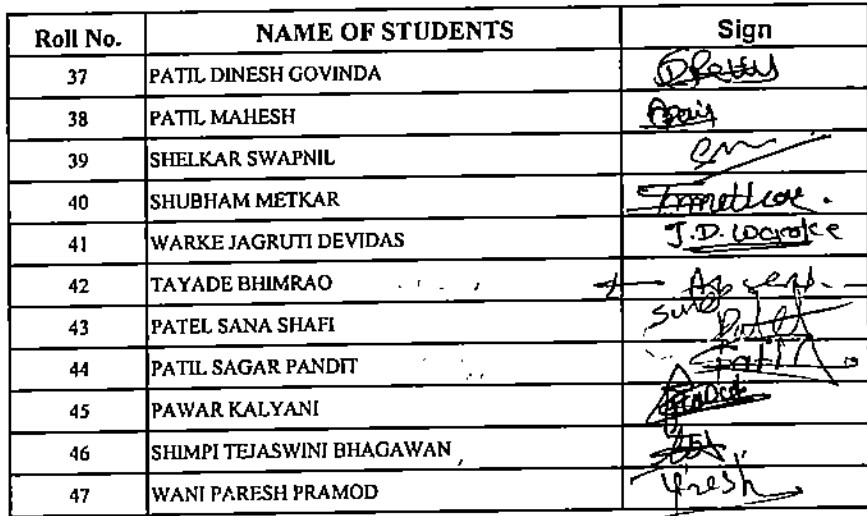 Roll No. NAME OF STUDENTS Sign
37 PATIL DINESH GOVINDA
38 PATIL MAHESH
39 SHELKAR SWAPNIL
40 SHUBHAM METKAR
41 WARKE JAGRUTI DEVIDAS J.D. Warke
42 TAYADE BHIMRAO Absent
43 PATEL SANA SHAFI
44 PATIL SAGAR PANDIT Patil
45 PAWAR KALYANI
46 SHIMPI TEJASWINI BHAGAWAN
47 WANI PARESH PRAMOD